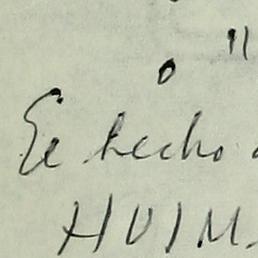 o "
Ee hecho
HUIM